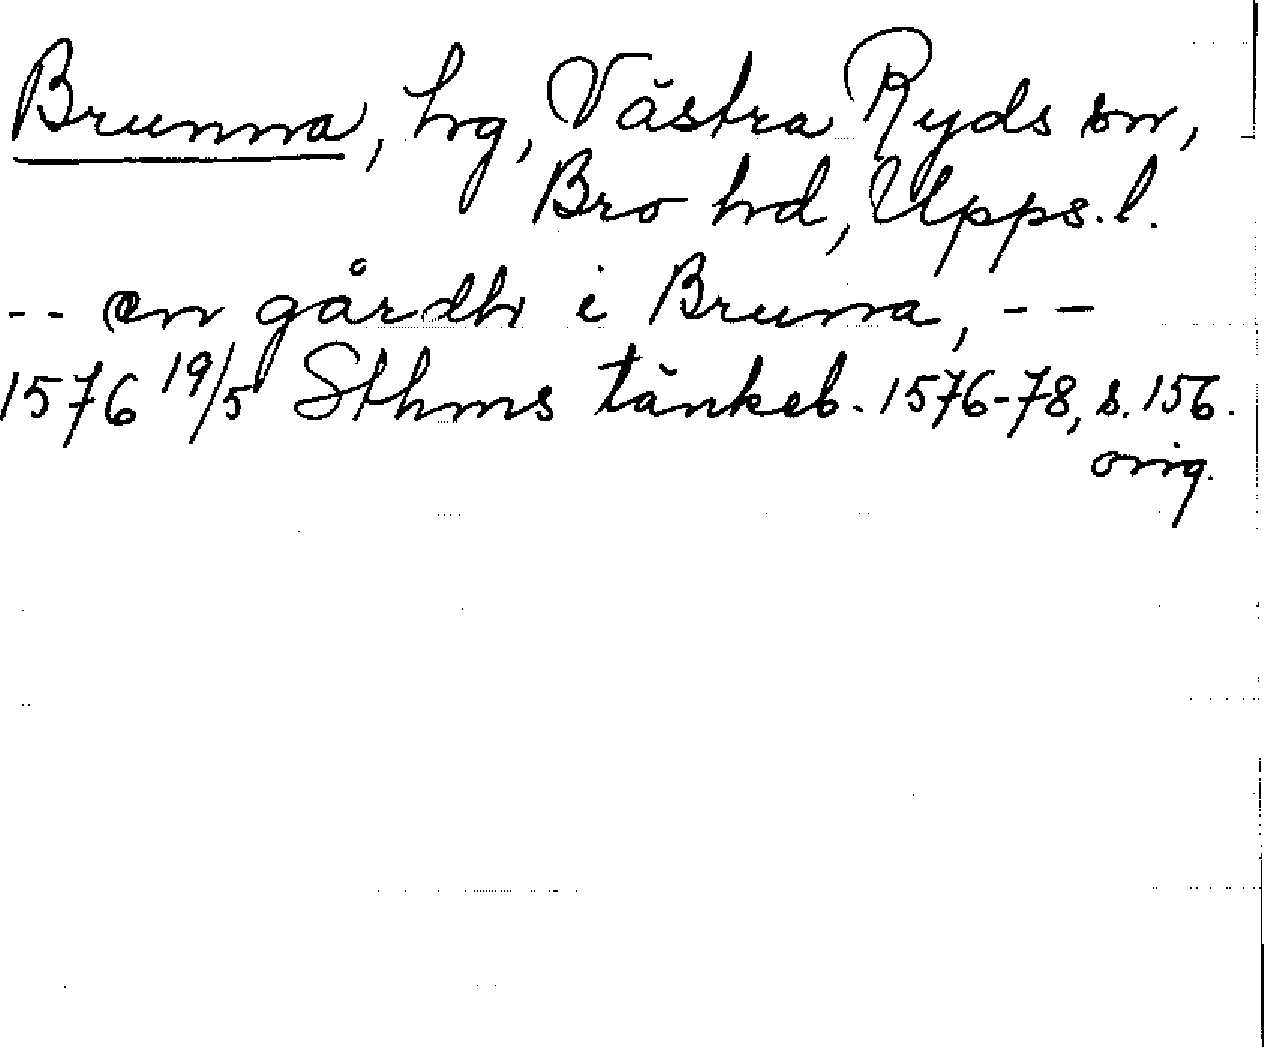 Brunna, hg, Västra Ryds sn,
Bro hd, Upps. l.
-- en gårdh i Bruna, --
1576 19/5 Sthms tänkeb. 1576-78, s. 156.
orig.